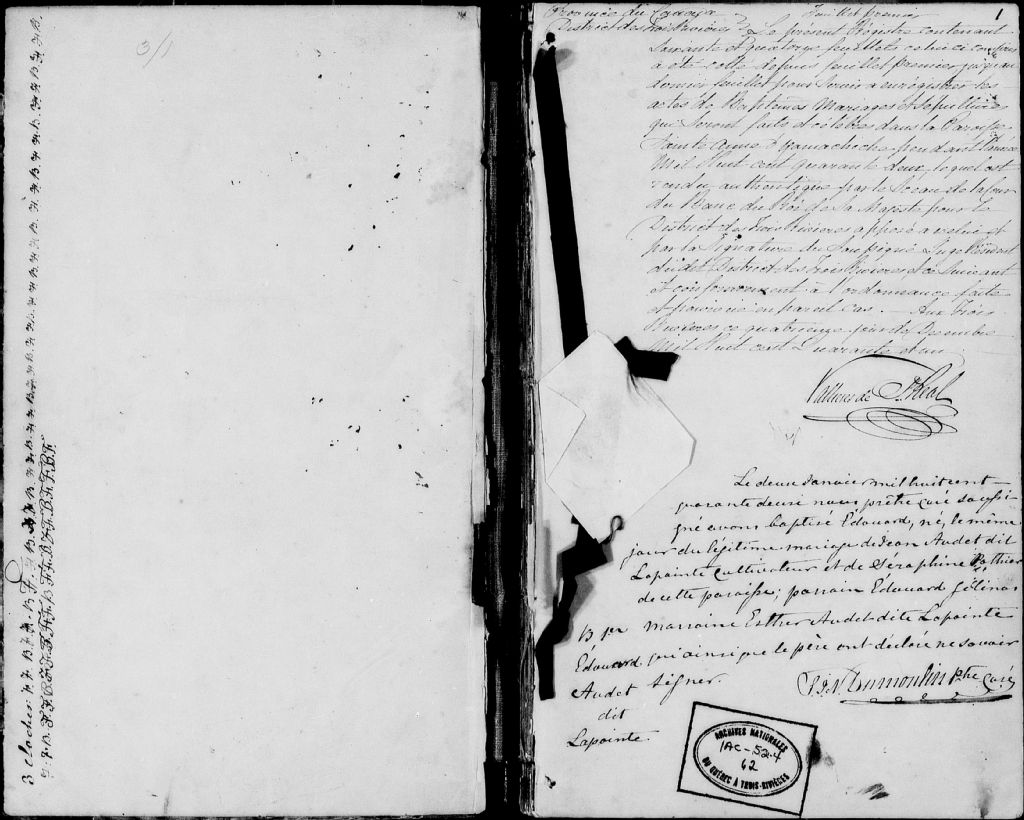 3/1
3 cloches
1
Province du Canada
District des trois Rivieres
Feuillet premier
Le présent Régistre contenant
Soixante et quatorze feuillets celui ci compris
a été cotté depuis feuillet premier jusqu'au
dernier feuillet pour servir a enrégistrer les
actes de Baptêmes Mariages et Sepultures
qui seront faits et célébrés dans la Paroisse
Sainte Anne d'Yamachiche pendant l'année
Mil Huit cent quarante deux, lequel est
rendu authentique par le Sceau de la Cour
du Banc du Roi de Sa Majesté pour le
District des Trois Rivieres apposé a celui ci
par la Signature du Soussigné Juge Résident
du dit District des Trois Rivieres et ce Suivant
et conformement à l'ordonnance faite
et pourvue en pareil cas. Aux Trois
Rivieres ce quatorzieme jour de Decembre
Mil Huit cent Quarante et un
Vallieres de St Real
Le deux Janvier mil huit cent
quarante deux nous prêtre curé soussi-
gné avons baptisé Edouard, né, le même
jour du légitime mariage de Jean Audet dit
Lapointe Cultivateur et de Séraphine Pothier
de cette paroisse; parrain Edouard Gélinas
B 1er
marraine Esther Audet dite Lapointe
Edouard
qui ainsi que le père ont déclaré ne savoir
Audet
signer.
dit
Lapointe
Dumoulin Ptre Curé
ARCHIVES NATIONALES
IAC-52.4
62
DU QUÉBEC À TROIS-RIVIÈRES